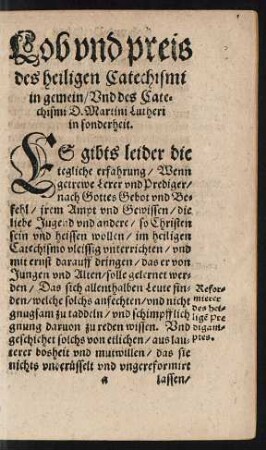 Lob vnd preis
des heiligen Catechismi
in gemein/ Vnd des Cate-
chismi D. Martini Lutheri
in sonderheit.
ES gibts leider die
tegliche erfahrung/ Wenn
getrewe Lerer vnd Prediger/
nach Gottes Gebot vnd Be-
fehl/ jrem Ampt vnd Gewissen/ die
liebe Jugend vnd andere/ so Christen
sein vnd heissen wollen/ im heiligen
Catechismo vleissig vnterrichten/ vnd
mit ernst darauff dringen/ das er von
Jungen vnd Alten/ solle gelernet wer-
den/ Das sich allenthalben Leute fin-
den/ welche solchs anfechten/ vnd nicht
gnugsam zu taddeln/ vnd schimpfflich
gnung daruon zu reden wissen. Vnd
geschichet solchs von etlichen/ aus lau-
terer bosheit vnd mutwillen/ das sie
nichts vngerüffelt vnd vngereformirt
Refor-
mierer
des hei-
ligē Pre
digam-
ptes.
a lassen/